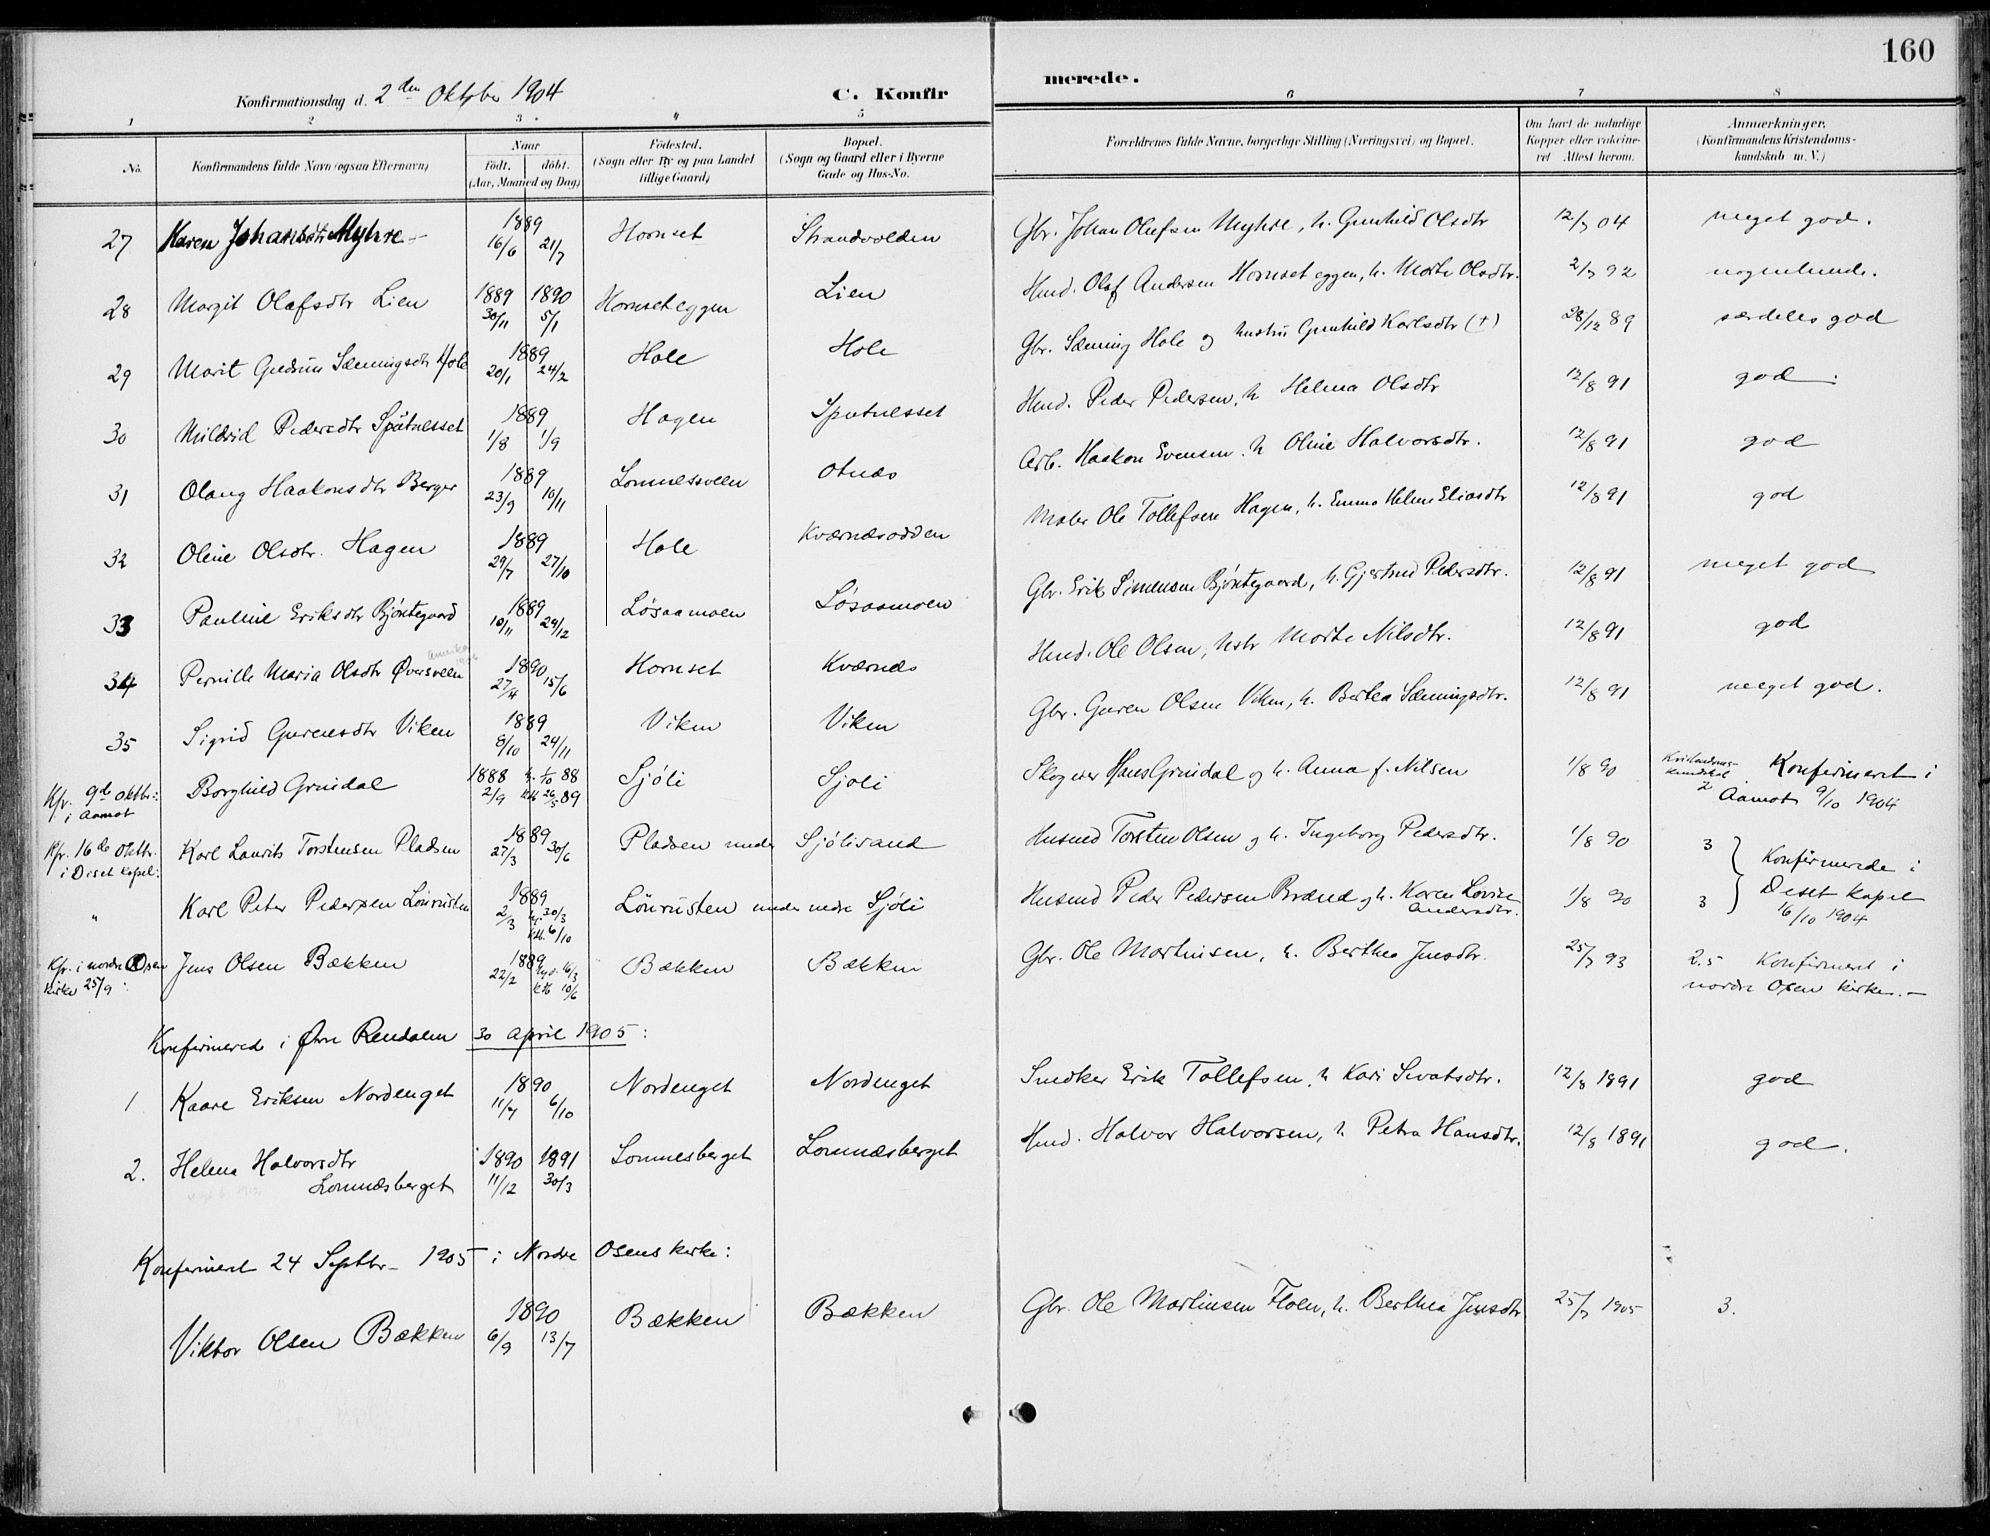 160
Konfirmationsdag d. 2den Oktober 1904 C. Konfir merede.
1 2 3 4 5 6 7 8
No. Konfirmandens fulde Navn (ogsaa Efternavn) Naar født. døbt. (Aar, Maaned og Dag) Fødested. (Sogn eller By og paa Landet tillige Gaard) Bopæl. (Sogn og Gaard eller i Byerne Gade og Hus-No. Forældrenes fulde Navne, borgerlige Stilling (Næringsvei) og Bopæl. Om havt de naturlige Kopper eller vakcineret. Attest herom. Anmærkninger. (Konfirmandens Kristendomskundskab m. V.)
27 Karen Johansdtr Myhre 1889 16/6 21/7 Hornset Strandvolden Gbr. Johan Olufsen Myhre, h. Gunhild Olsdtr 12/7 04 meget god.
28 Margit Olafsdtr Lien 1889 30/11 1890 5/1 Hornseteggen Lien Hmd. Olaf Andersen Hornseteggen, h. Marte Olsdtr. 2/7 92 nogenlunde.
29 Marit Gudrun Sæmingsdtr Hole 1889 20/1 24/2 Hole Hole Gbr. Sæming Hole og hustru Gunhild Karlsdtr (+) 28/12 89 særdeles god
30 Mildrid Pedersdtr Sputnesset 1889 1/8 1/9 Hagen Sputnesset Hmd. Peder Pedersen, h Helma Olsdtr 12/8 91 god.
31 Olaug Haakonsdtr Berger 1889 23/9 10/11 Lomnessveen Otnæs Arb. Haakon Evensen. h Oline Halvorsdtr. 12/8 91 god
32 Oline Olsdtr. Hagen 1889 29/7 27/10 Hole Kværnæsodden Maler Ole Tollefsen Hagen, h. Emma Helene Eliasdtr 12/8 91 god
33 Pauline Eriksdtr Bjöntegaard 1889 10/11 29/12 Løsaamoen Løsaamoen Gbr. Erik Simensen Bjøntegaard, h. Gjertrud Pedersdtr. 12/8 91 meget god
34 Pernille Maria Olsdtr Øversveen 1890 27/4 15/6 Hornset Kværnæs Hmd. Ole Olsen, hstr Marte Nilsdtr. 12/8 91 god
35 Sigrid Gurensdtr Viken 1889 8/10 24/11 Viken Viken Gbr. Guren Olsen Viken, h. Berthea Sæmingsdtr. 12/8 91 meget god.
Kfr. 9de oktbr: i Aamot Borghild Grindal 1888 2/9 88 89 Sjöli Sjöli Skogeier Hans Grindal og h. Anna f. Nilsen 1/8 90 Kristendomskundskab 2 Konfirmeret i Aamot 9/10 1904
Kfr. 16de Oktbr. i Deset kapel: Karl Laurits Torstensen Pladsen 1889 27/3 30/6 Pladsen under Sjölisand Husmd Torsten Olsen og h. Ingeborg Pedersdtr. 1/8 90 3 Konfirmerede i
" Karl Peter Pedersen Lönrusten 1889 2/3 30/3 6/10 Lönrusten under nedre Sjöli Husmd Peder Pedersen Brænd og h. Karen Lovise Andersdtr. 1/8 90 3 Deset kapel 16/10 1904
Kfr. i nordre Osen kirke 25/9: Jens Olsen Bækken 1889 22/2 16/3 10/6 Bækken Bækken Gbr. Ole Martinsen, h. Berthea Jensdtr. 25/7 93 2.5 Konfirmeret i nordre Osen kirke.
Konfirmerede i Øvre Rendalen 30 April 1905:
1 Kaare Eriksen Nordenget 1890 11/7 6/10 Nordenget Nordenget Snedker Erik Tollefsen, h Kari Sivatsdtr. 12/8 1891 god
2. Helena Halvorsdtr Lomnæsberget 1890 11/12 1891 30/3 Lomnesberget Lomnæsberget Hmd. Halvor Halvorsen, h Petra Hansdtr. 12/8 1891 god.
Konfirmeret 24 Septbr 1905 i Nordre Osens kirke:
Viktor Olsen Bækken 1890 6/9 13/7 Bækken Bækken Gbr. Ole Martinsen Floen, h. Berthea Jensdtr 25/7 1905 3.